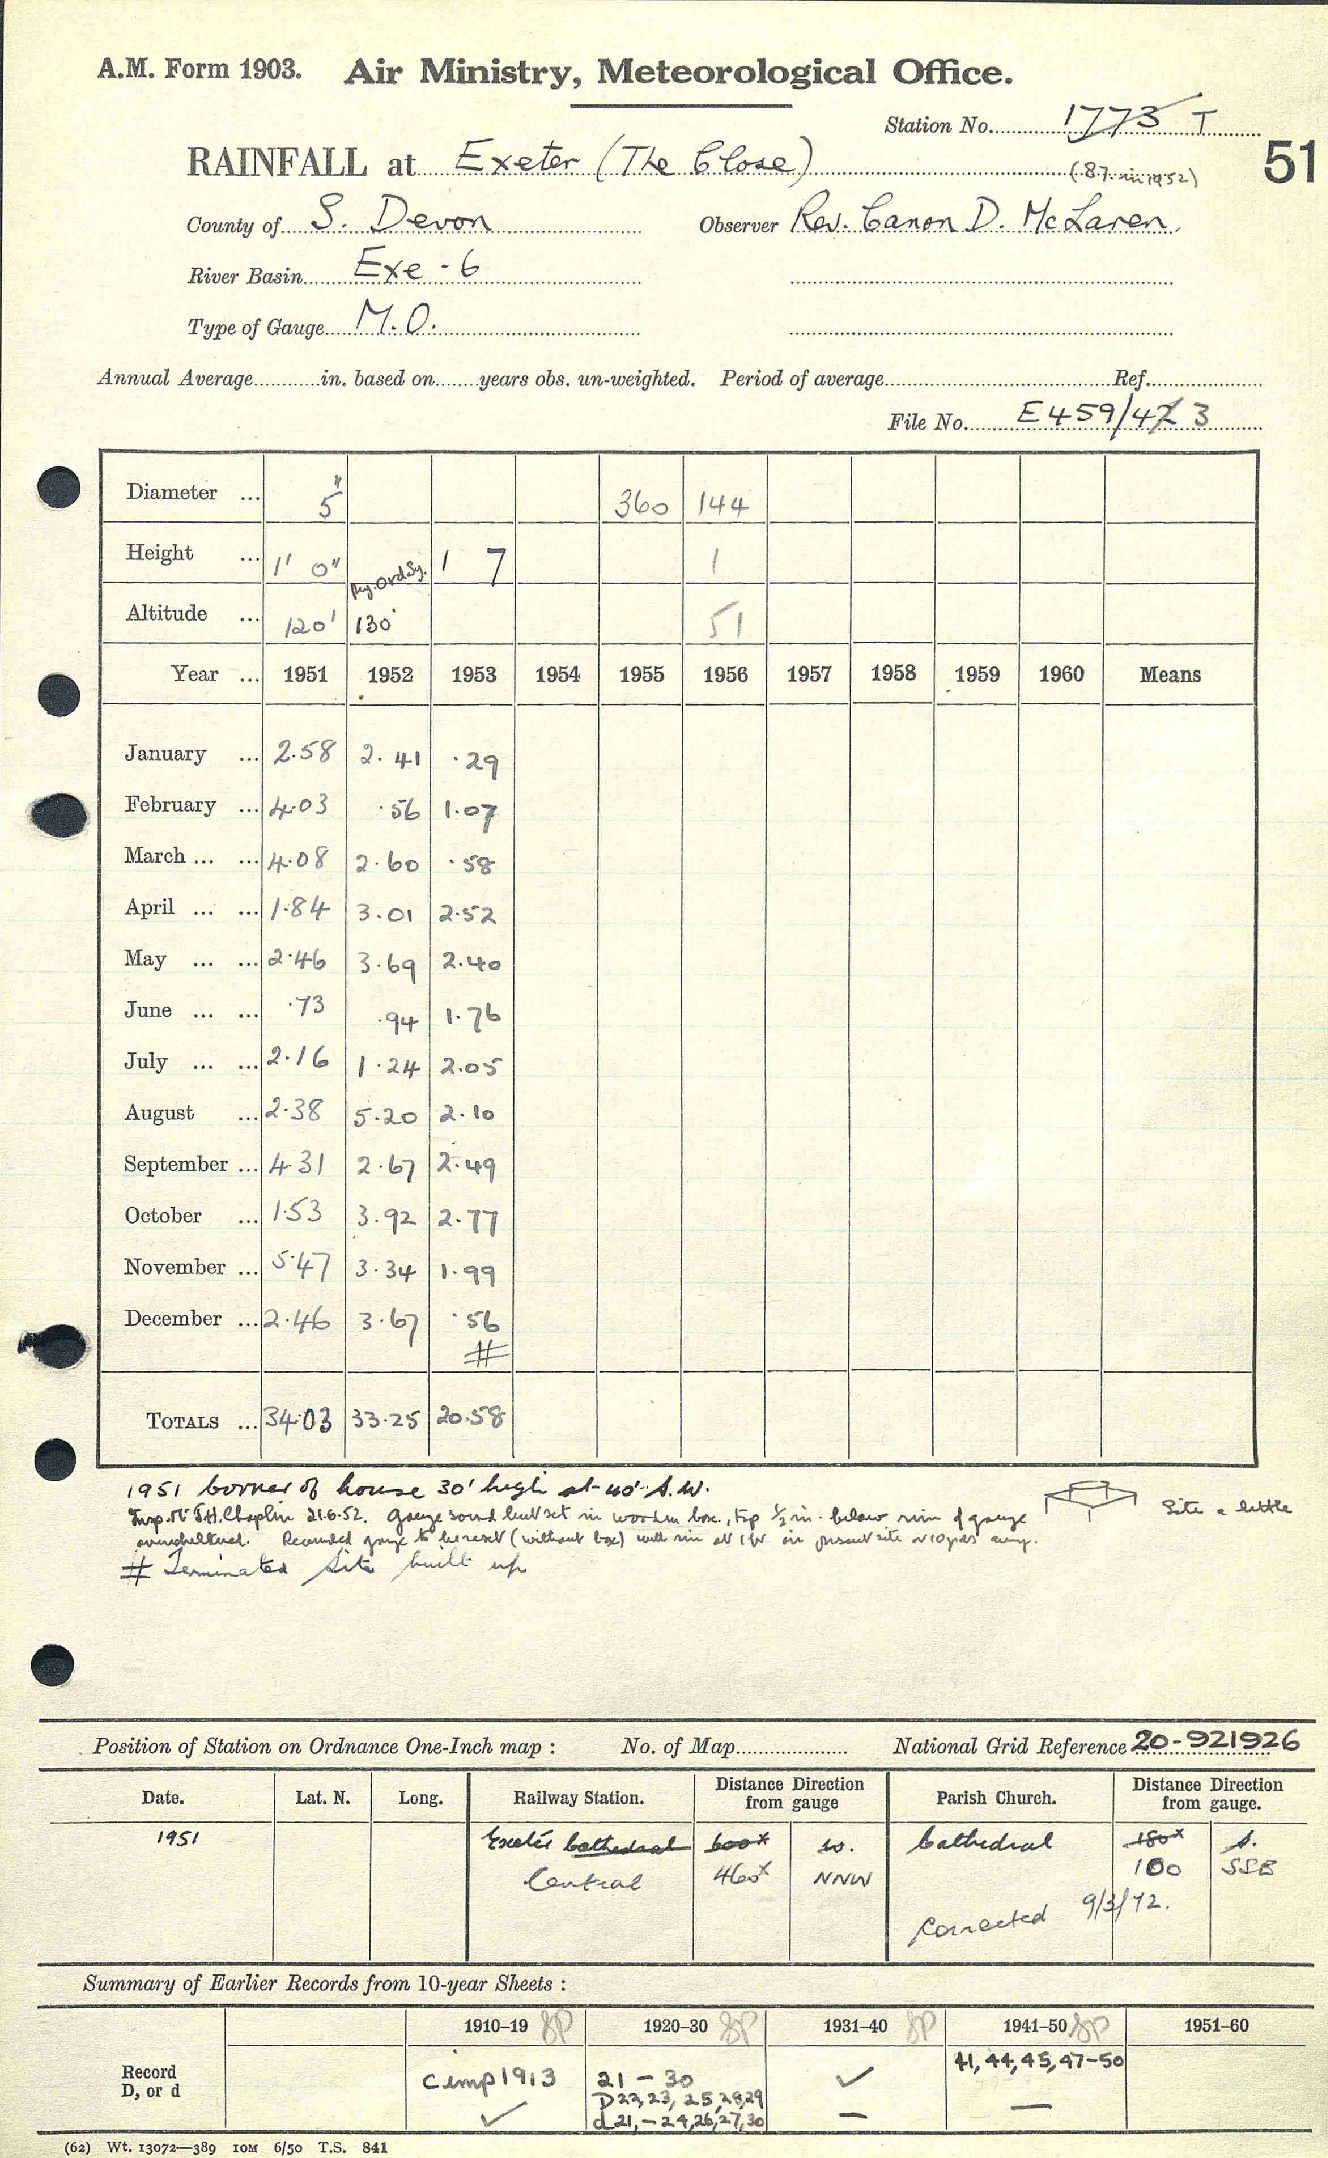 A.M. Form 1903. Air Ministry, Meteorological Office.
Station No. 1773 T
51
RAINFALL at Exeter (The Close) (.87. in 1952)
County of S. Devon Observer Rev. Canon D. McLaren.
River Basin Exe - 6
Type of Gauge M.O.
Annual Average in. based on years obs. un-weighted. Period of average Ref.
File No. E459/42 3
Diameter ... 5" 360 144
Height ... 1' 0" 1 7 1
Altitude ... 120' Ord.Sy. 130' 51
Year ... 1951 1952 1953 1954 1955 1956 1957 1958 1959 1960 Means
January ... 2.58 2.41 .29
February ... 4.03 .56 1.07
March ... ... 4.08 2.60 .58
April ... ... 1.84 3.01 2.52
May ... ... 2.46 3.69 2.40
June ... ... .73 .94 1.76
July ... ... 2.16 1.24 2.05
August ... 2.38 5.20 2.10
September ... 4.31 2.67 2.49
October ... 1.53 3.92 2.77
November ... 5.47 3.34 1.99
December ... 2.46 3.67 .56
#
TOTALS ... 34.03 33.25 20.58
1951 Corner of house 30' high at 40' S.W.
Insp. Mr J.H. Chaplin 21.6.52. Gauge sound but set in wooden box, top ½ in. below rim of gauge Site a little
oversheltered. Recommended gauge to be reset (without box) with rim at 1 ft in present site or 10 yds away.
# Terminated Site built up
Position of Station on Ordnance One-Inch map : No. of Map National Grid Reference 20-921926
Date. Lat. N. Long. Railway Station. Distance Direction from gauge Parish Church. Distance Direction from gauge.
1951 Exeter Cathedral 600x W. Cathedral 180x S.
Central 460x NNW 100 SSE
Corrected 9/3/72.
Summary of Earlier Records from 10-year Sheets :
1910–19 SP 1920–30 SP 1931–40 SP 1941–50 SP 1951–60
Record D, or d
c imp 1913 21 – 30 ✓ 41, 44, 45, 47–50
✓ D 22, 23, 25, 28, 29 — —
d 21, – 24, 26, 27, 30
(62) Wt. 13072—389 10M 6/50 T.S. 841